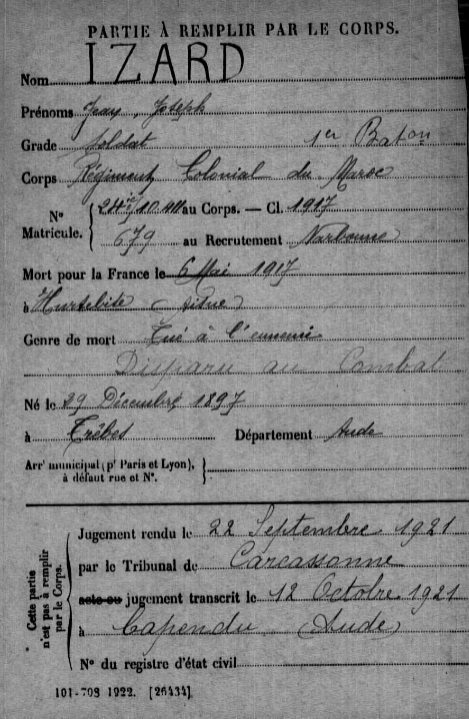 PARTIE À REMPLIR PAR LE CORPS.
Nom IZARD
Prénoms Jean, Joseph
Grade Soldat 1er Baton
Corps Régiment Colonial du Maroc
N° Matricule. { au Corps. — Cl. 1917
679 au Recrutement Narbonne
Mort pour la France le 6 Mai 1917
à Hurtebise (Aisne)
Genre de mort Tué à l'ennemi
Disparu au Combat
Né le 29 Décembre 1897
à Trèbes Département Aude
Arrt municipal (pr Paris et Lyon), }
à défaut rue et N°.
Cette partie n'est pas à remplir par le Corps.
Jugement rendu le 22 Septembre 1921
par le Tribunal de Carcassonne
acte ou jugement transcrit le 12 Octobre 1921
à Capendu (Aude)
N° du registre d'état civil
101-708 1922. [26434]